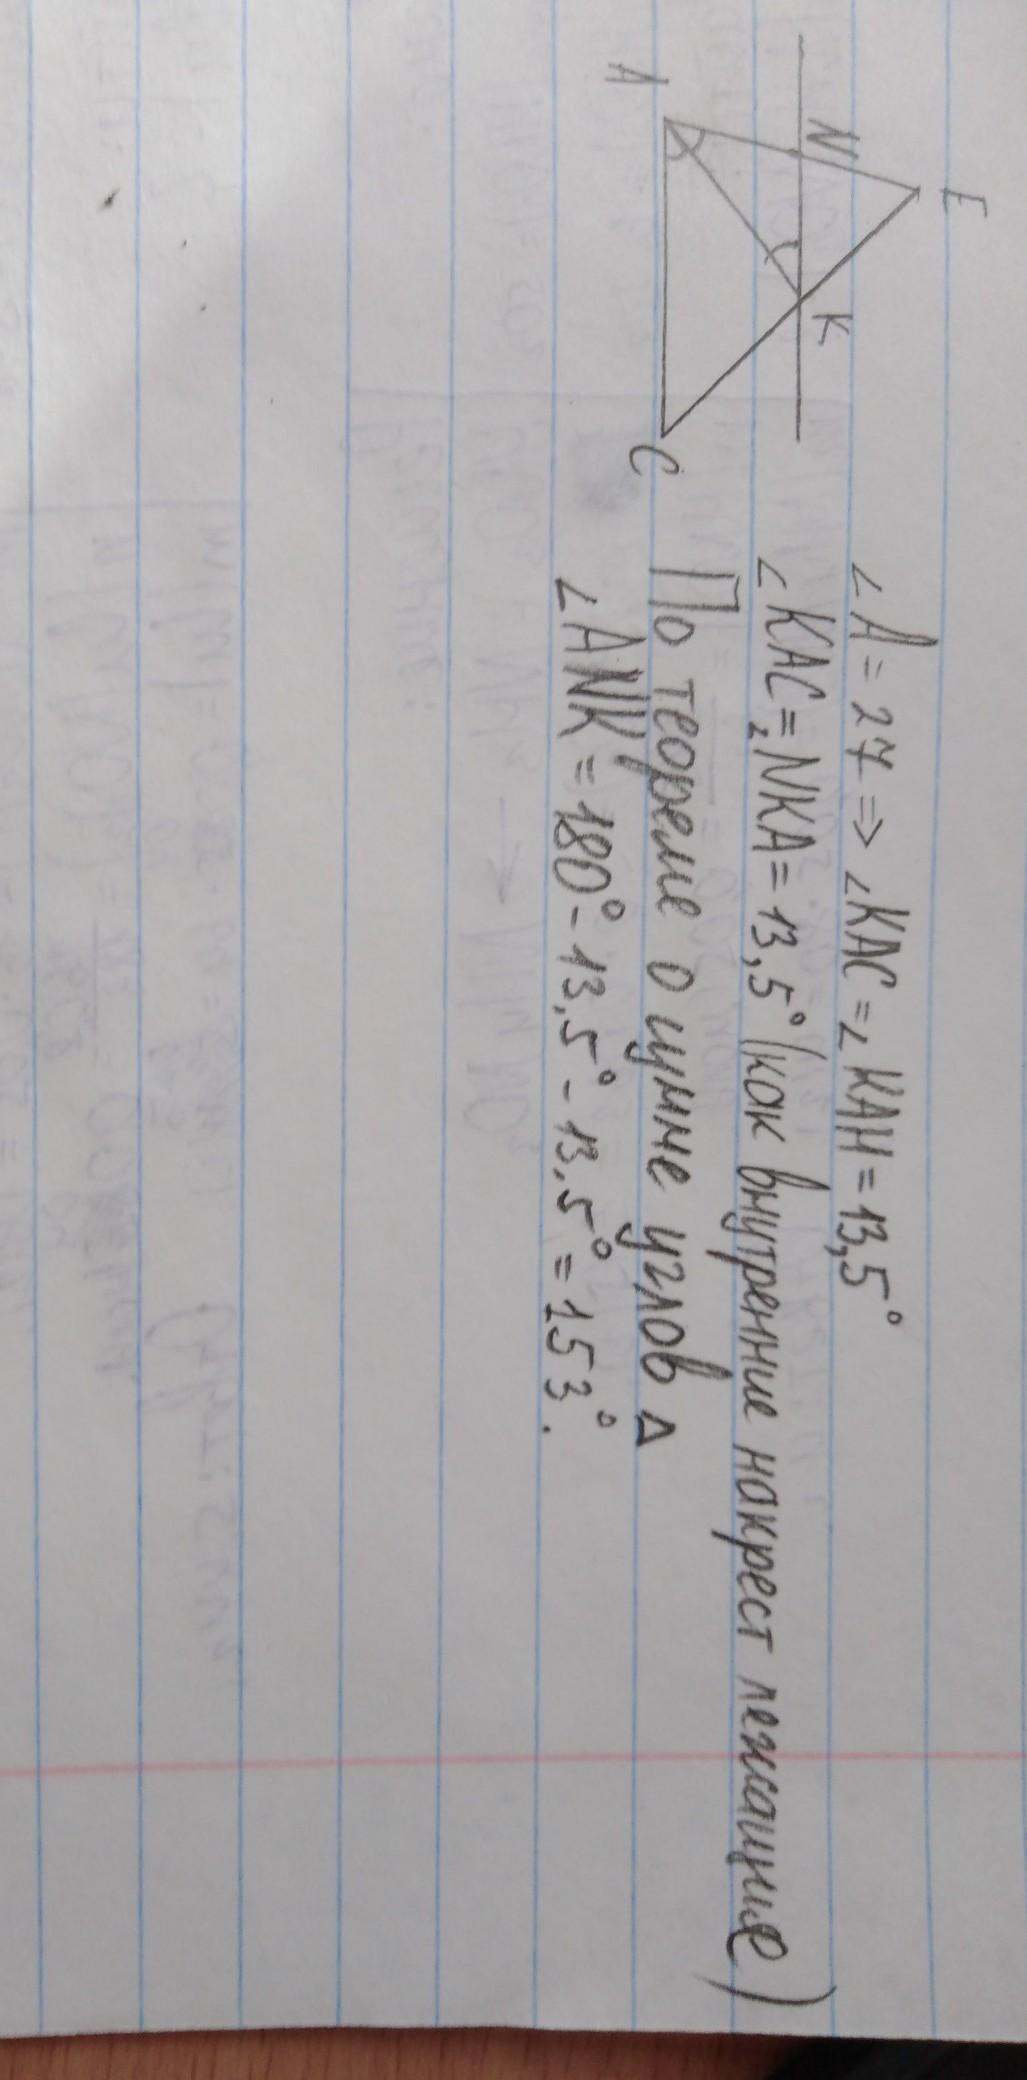 E
N
K
A
C
∠A = 27 => ∠KAC = ∠KAH = 13,5°
∠KAC = ∠NKA = 13,5° (как внутренние накрест лежащие)
По теореме о сумме углов Δ
∠ANK = 180° - 13,5° - 13,5° = 153°.